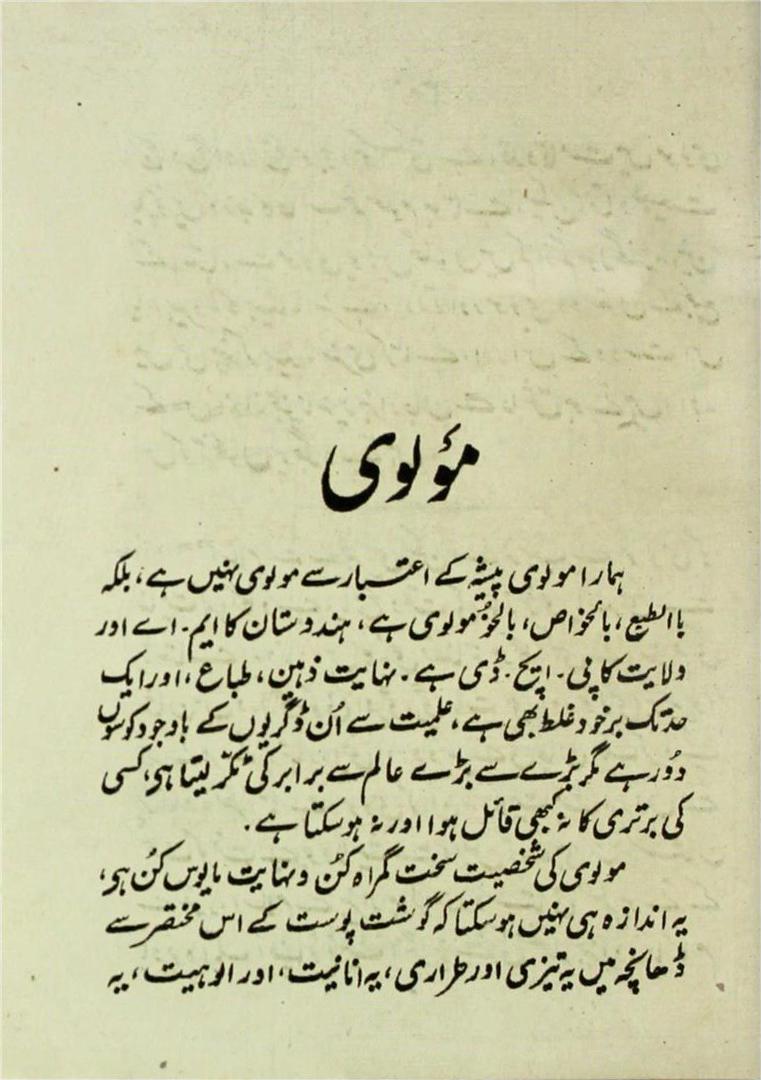 مؤلوی
ہمارا مولوی پیشہ کے اعتبار سے مولوی نہیں ہے، بلکہ
باالطبع، بالخواص، بالخو مولوی ہے، ہندوستان کا ایم۔اے اور
ولایت کا پی۔ ایچ۔ ڈی ہے۔ نہایت ذہین، طباع، اور ایک
حد تک برخود غلط بھی ہے، علمیت سے اُن ڈگریوں کے باوجود کوسوں
دُور ہے مگر بڑے سے بڑے عالم سے برابر کی ٹکر لیتا ہی، کسی
کی برتری کا نہ کبھی قائل ہوا اور نہ ہو سکتا ہے۔
مولوی کی شخصیت سخت گمراہ کُن و نہایت مایوس کُن ہی،
یہ اندازہ ہی نہیں ہو سکتا کہ گوشت پوست کے اس مختصر سے
ڈھانچہ میں یہ تیزی اور طراری، یہ انانیت، اور الوہیت، یہ